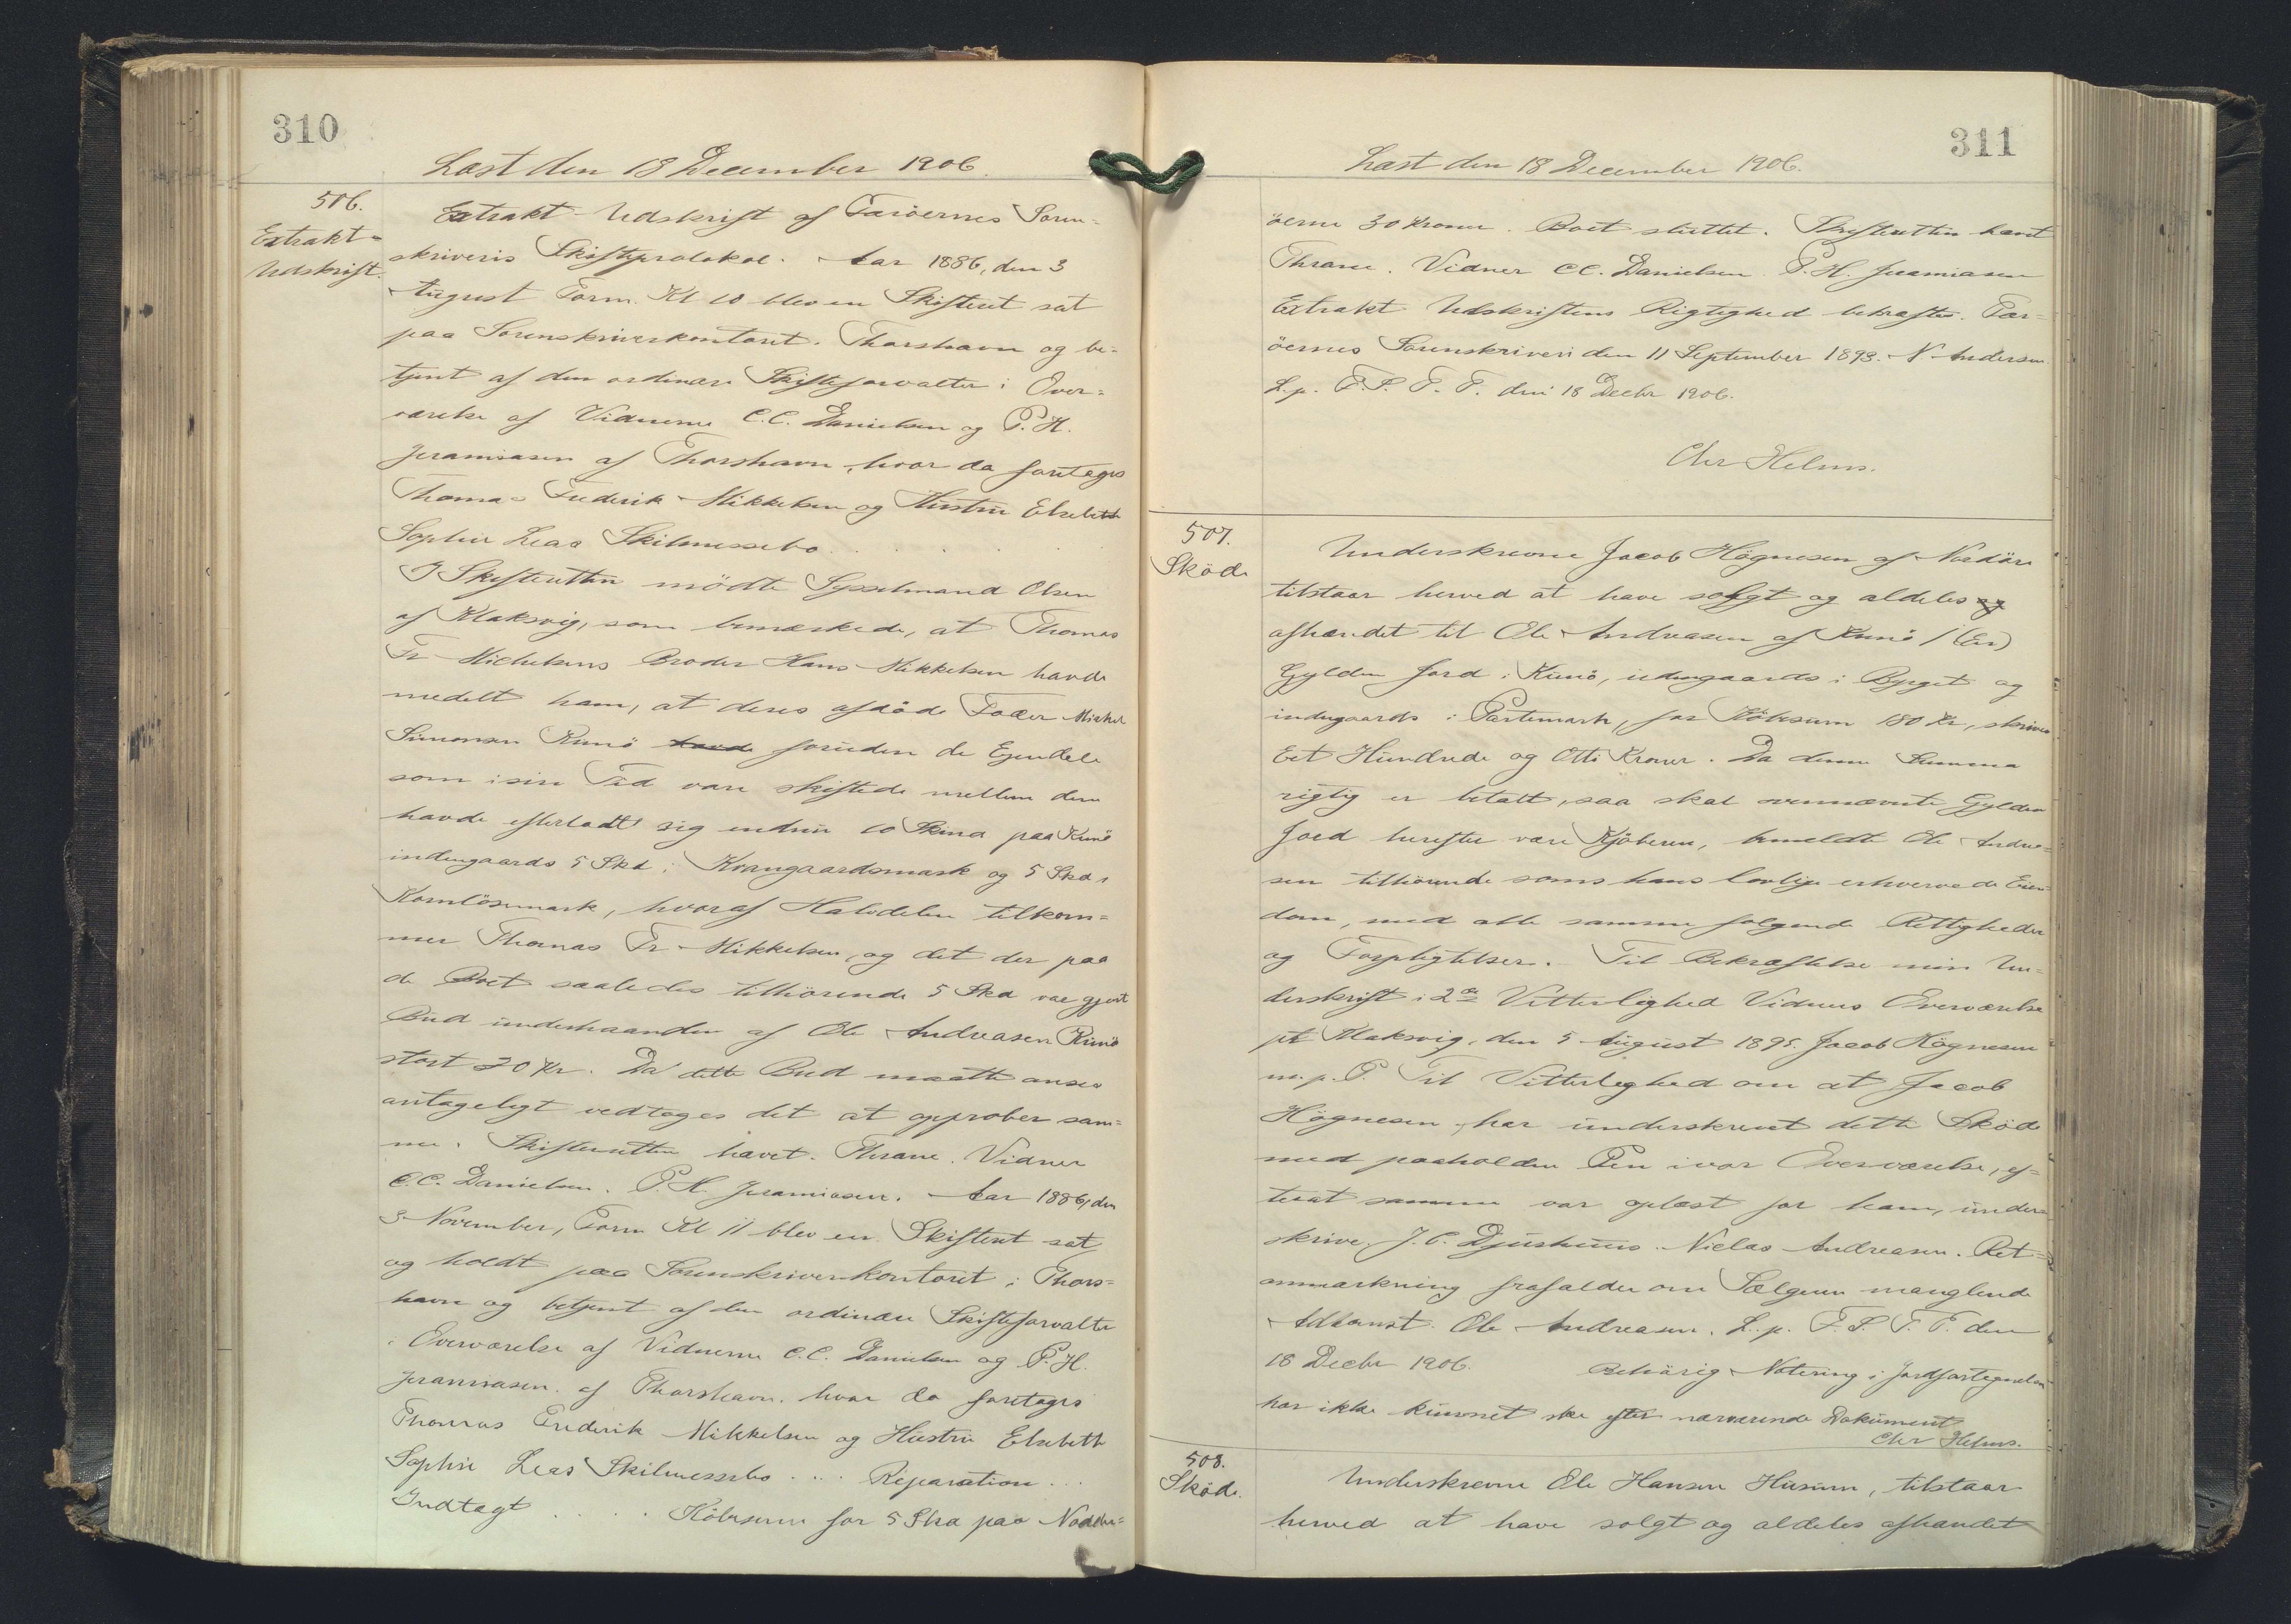 310
Læst den 18 December 1906.
506.
Extrakt-
Udskrift.
Extrakt-Udskrift af Færöernes Soren-
skriveris Skifteprotokol. Aar 1886, den 3
August Form. Kl 10 blev en Skifteret sat
paa Sorenskriverkontoret i Thorshavn og be-
tjent af den ordinære Skifteforvalter i Over-
værelse af Vidnerne C.C. Danielsen og P.H.
Jeramiasen af Thorshavn, hvor da foretages
Thomas Frederik Mikkelsen og Hustru Elsebeth
Sophie Leas Skilmessebo . . . . .
I Skifteretten mödte Sysselmand Olsen
af Klaksvig, som bemærkede, at Thomas
Fr Michelsens Broder Hans Mikkelsen havde
medelt ham, at deres afdöde Fader Mikkel
Simonsen Kunö havde foruden de Ejendele
som i sin Tid vare skiftede mellem dem
havde efterladt sig endnu 10 Skind paa Kunö
indengaards 5 Skd i Kvangaardsmark og 5 Skd i
Kornlösemark, hvoraf Halvdelen tilkom-
mer Thomas Fr Mikkelsen, og det der paa
de Boet saaledes tilhörende 5 Skd var gjort
Bud underhaanden af Ole Andreasen Kunö
stort 30 Kr. Da dette Bud maatte anses
antageligt vedtages det at approber sam-
me. Skifteretten hævet. Thrane. Vidner
C.C. Danielsen. P.H. Jeramiasen. Aar 1886, den
3 November, Form Kl 11 blev en Skifteret sat
og holdt paa Sorenskriverkontoret i Thors-
havn og betjent af den ordinære Skifteforvalter
i Overværelse af Vidnerne C.C. Danielsen og P.H.
Jeramiasen af Thorshavn, hvor da foretages
Thomas Frederik Mikkelsen og Hustru Elsebeth
Sophie Leas Skilmessebo . . . Reparation . . .
Indtægt . . . . Köbesum for 5 Skd paa Nordder-
311
Læst den 18 December 1906.
öerne 30 Kroner. Boet sluttet. Skifteretten hævet
Thrane. Vidner C.C. Danielsen. P.H. Jeramiasen
Extrakt Udskriftens Rigtighed bekræftes. Fær-
öernes Sorenskriveri den 11 September 1893. N. Andersen
L.p. F.S. T.P. den 18 Decbr 1906.
Chr Helms.
507.
Sköde
Underskrevne Jacob Högnesen af Nordöre
tilstaar herved at have solgt og aldeles og
afhændet til Ole Andreasen af Kunö 1 (En)
Gylden Jord i Kunö, udengaards i Bygget og
indengaards i Partemark, for Köbesum 180 Kr, skriver
Eet Hundrede og Otti Kroner. Da denne Summa
rigtig er betalt, saa skal ovennævnte Gylden
Jord herefter være Kjöberen, bemeldte Ole Andrea-
sen tilhörende som hans lovlige erhvervede Eien-
dom, med alle samme følgende Rettigheder
og Forpligtelser. Til Bekræftelse min Un-
derskrift i 2de Vitterlighed Vidners Overværelse
pt Klaksvig, den 5 August 1895. Jacob Högnesen
m.p.P. Til Vitterlighed om at Jacob
Högnesen har underskrevet dette Sköde
med paaholden Pen i vor Overværelse, ef-
terat samme var oplæst for ham, under-
skrive. J.C. Djurhuus. Niclas Andreasen. Ret-
anmærkning frafalder om Sælgeren manglende
Adkomst. Ole Andreasen. L.p. F.S. T.P. den
18 Decbr 1906. Behörig Notering i Jordfortegnelsen
har ikke kunnet ske efter nærværende Dokument
Chr Helms.
508.
Sköde.
Underskrevne Ole Hansen Husum, tilstaar
herved at have solgt og aldeles afhændet